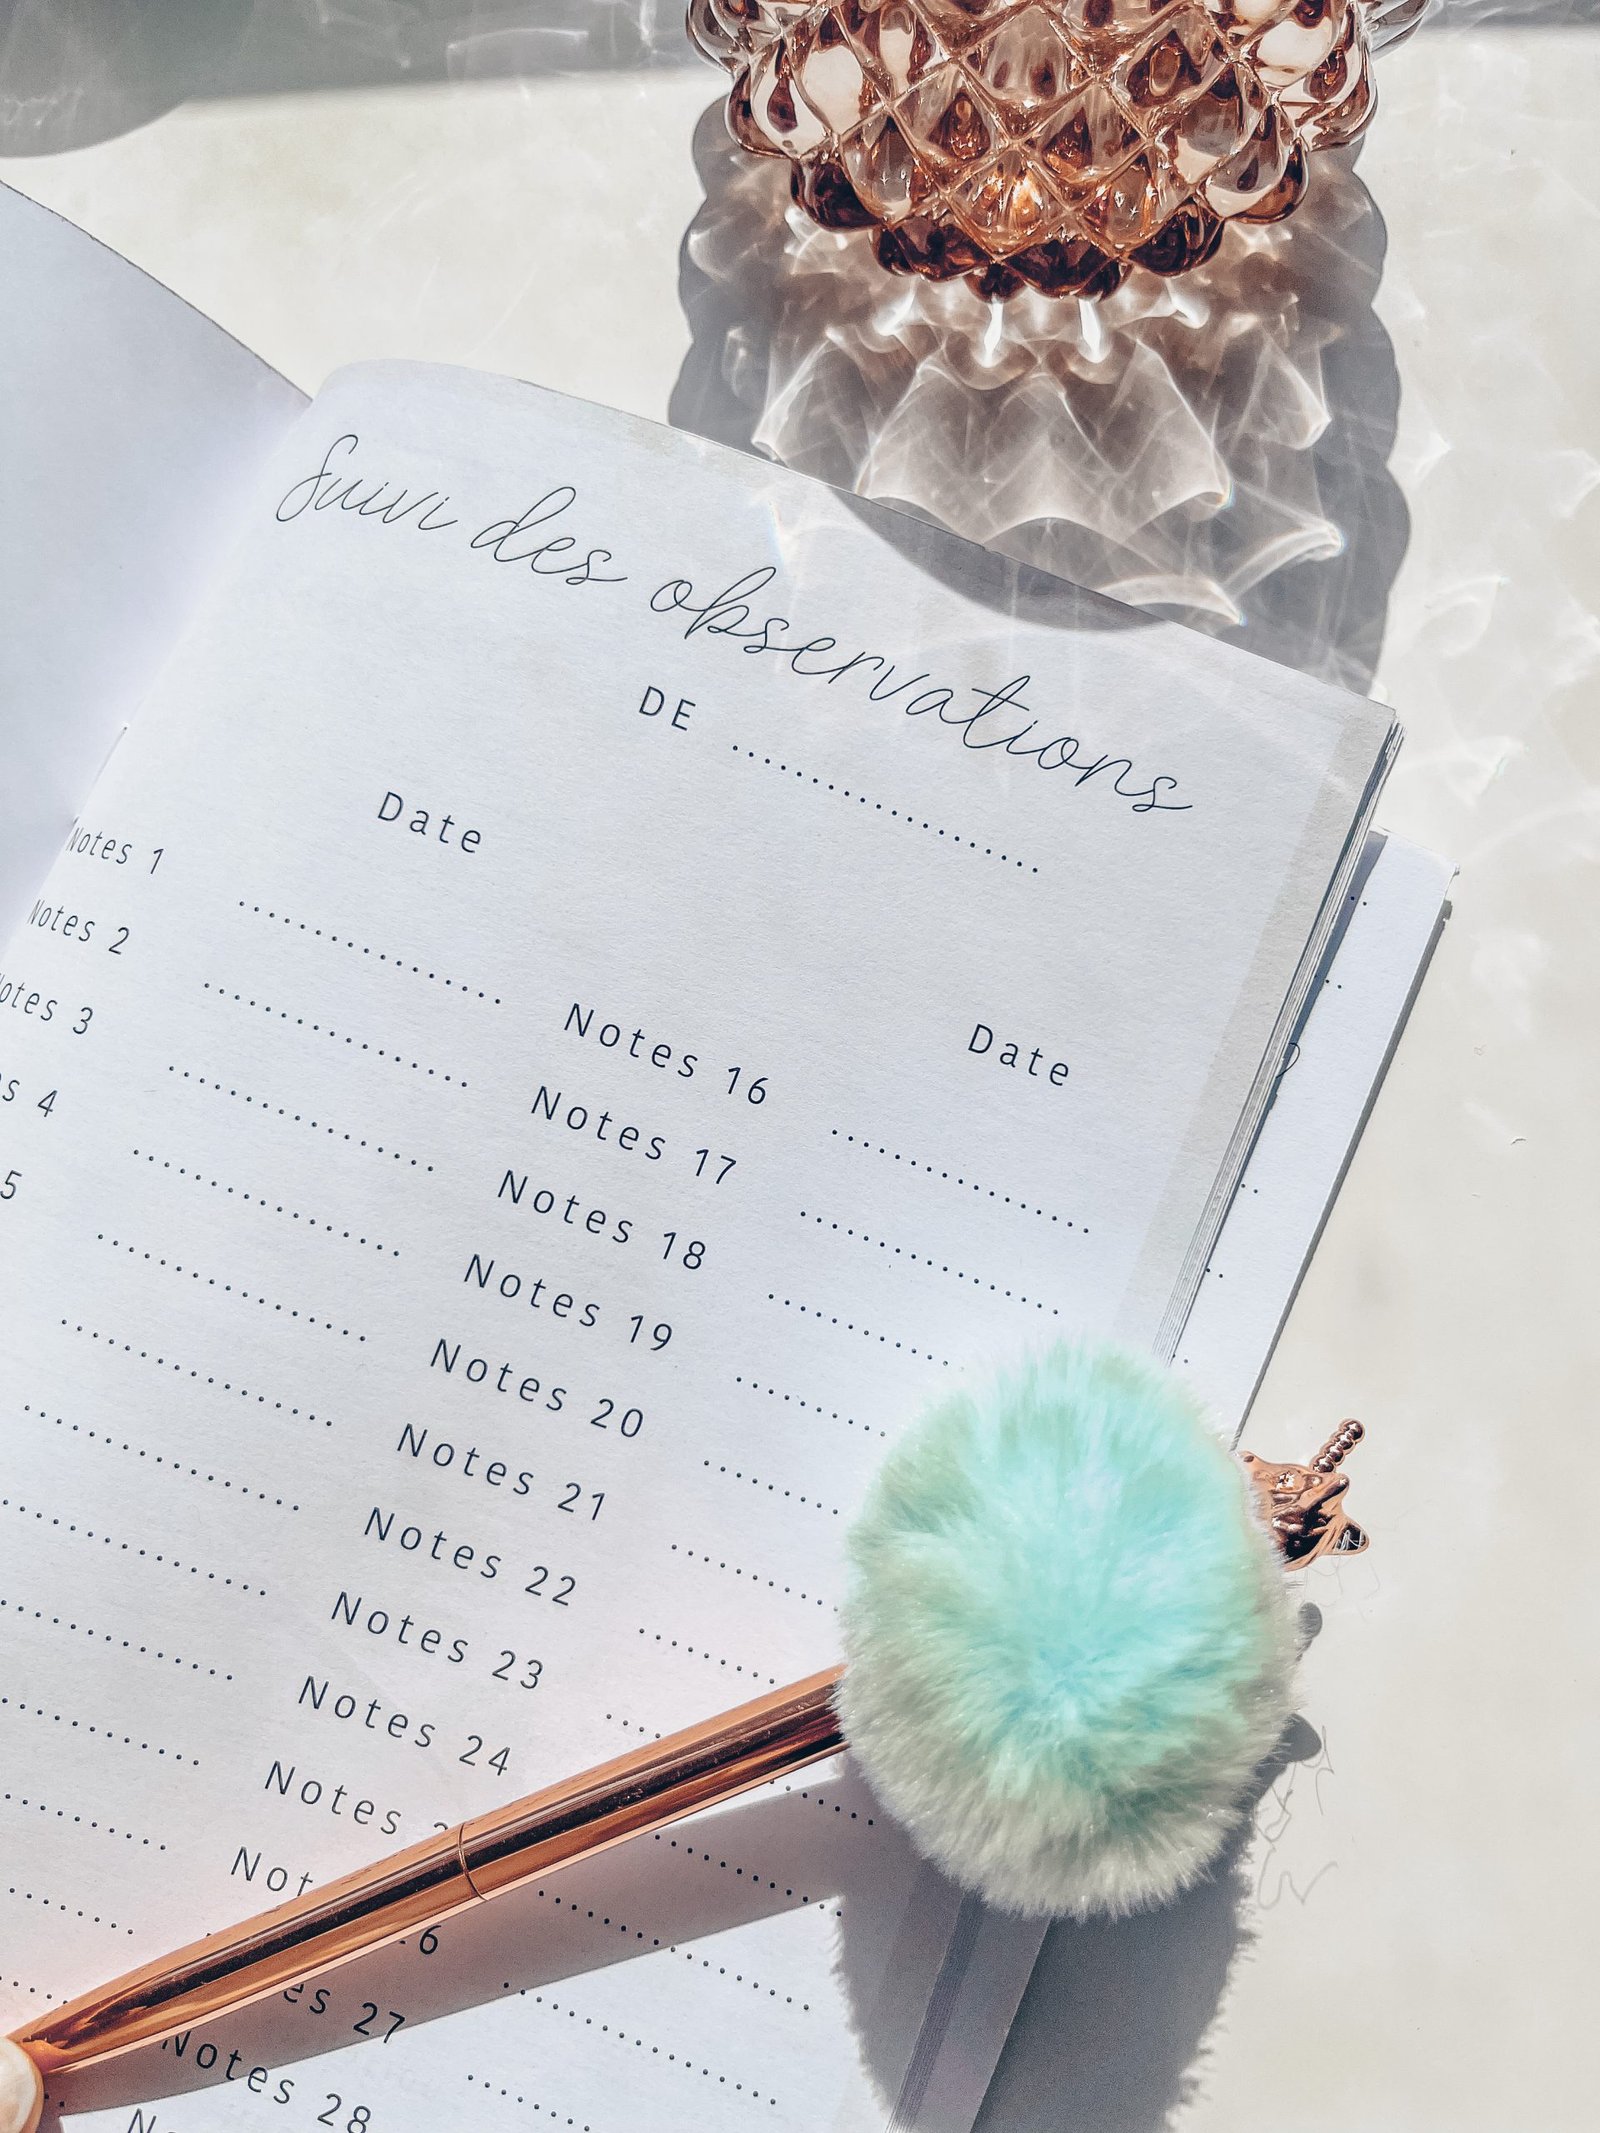 Suivi des observations
DE ....................
Date
Notes 1 ....................
Notes 2 ....................
3 ....................
4 ....................
5 ....................
Date
Notes 16 ....................
Notes 17 ....................
Notes 18 ....................
Notes 19 ....................
Notes 20 ....................
Notes 21 ....................
Notes 22 ....................
Notes 23 ....................
Notes 24 ....................
Notes
27 ....................
Notes 28 ....................